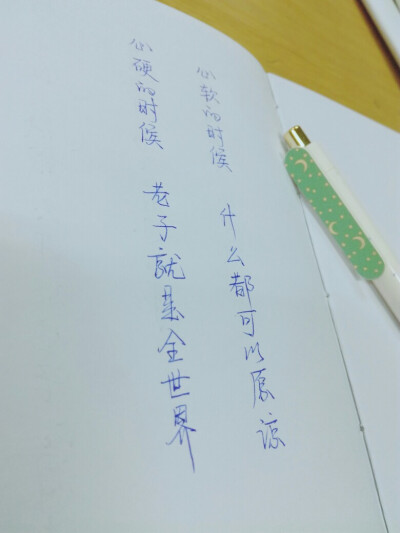 心软的时候 什么都可以原谅
心硬的时候 老子就是全世界